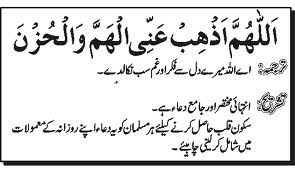 اَللّٰهُمَّ اَذْهِبْ عَنِّی الْهَمَّ وَالْحُزْنَ
ترجمہ: اے اللہ میرے دل سے فکر اور غم سب نکالدے۔
تشریح: انتہائی مختصر اور جامع دعاء ہے۔
سکون قلب حاصل کرنے کیلئے ہر مسلمان کو یہ دعاء اپنے روزانہ کے معمولات
میں شامل کرلینی چاہیئے۔